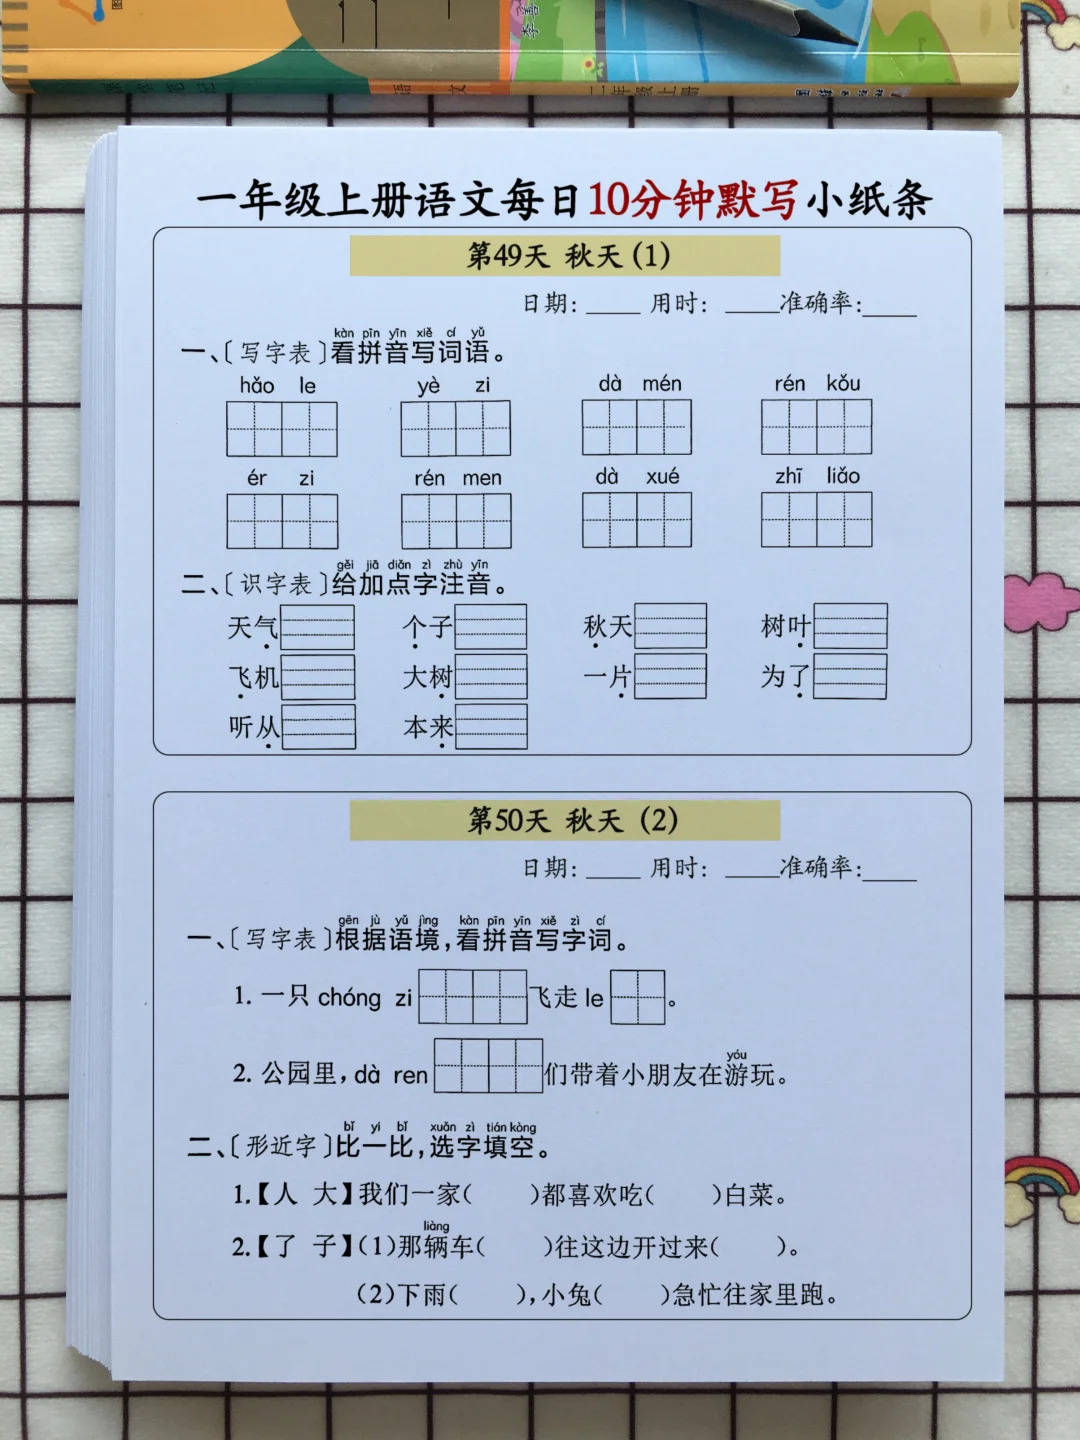 李喜
语
文
二年级上册
一年级上册语文每日10分钟默写小纸条
第49天 秋天(1)
日期: 用时: 准确率:
kàn pīn yīn xiě cí yǔ
一、〔写字表〕看拼音写词语。
hǎo le yè zi dà mén rén kǒu
ér zi rén men dà xué zhī liǎo
gěi jiā diǎn zì zhù yīn
二、〔识字表〕给加点字注音。
天气 个子 秋天 树叶
飞机 大树 一片 为了
听从 本来
第50天 秋天 (2)
日期: 用时: 准确率:
gēn jù yǔ jìng kàn pīn yīn xiě zì cí
一、〔写字表〕根据语境,看拼音写字词。
1. 一只 chóng zi 飞走 le 。
yóu
2. 公园里,dà ren 们带着小朋友在游玩。
bǐ yi bǐ xuǎn zì tián kòng
二、〔形近字〕比一比,选字填空。
1.【人 大】我们一家( )都喜欢吃( )白菜。
liàng
2.【了 子】(1)那辆车( )往这边开过来( )。
(2)下雨( ),小兔( )急忙往家里跑。